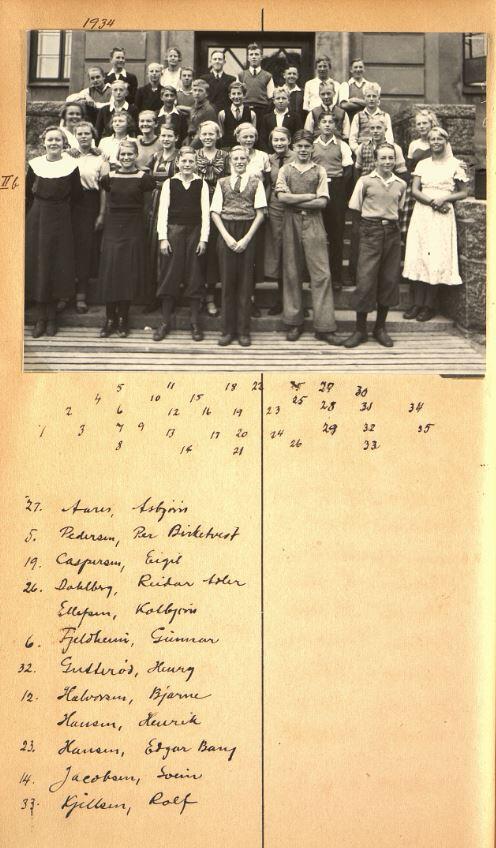 1934
II b
5 11 18 22 27 30
4 10 15 25
2 6 12 16 19 23 28 31 34
1 3 7 9 13 17 20 24 29 32 35
8 14 21 26 33
27. Aares, Asbjörn
5. Pedersen, Per Birketvedt
19. Caspersen, Eigil
26. Dahlberg, Reidar Adler
Ellefsen, Kolbjörn
6. Fjeldheim, Gunnar
32. Gutteröd, Henry
12. Halvorsen, Bjarne
Hansen, Henrik
23. Hansen, Edgar Bang
14. Jacobsen, Svein
33. Kjellsen, Rolf